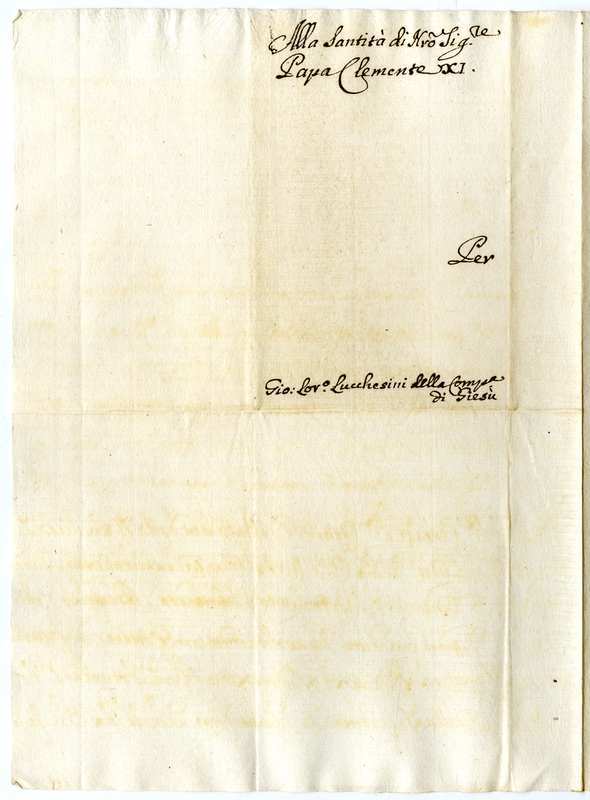 Alla Santità di Nrõ Sig.re
Papa Clemente XI.
Per
Gio: Lor.o Lucchesini della Comp.a
di Giesù